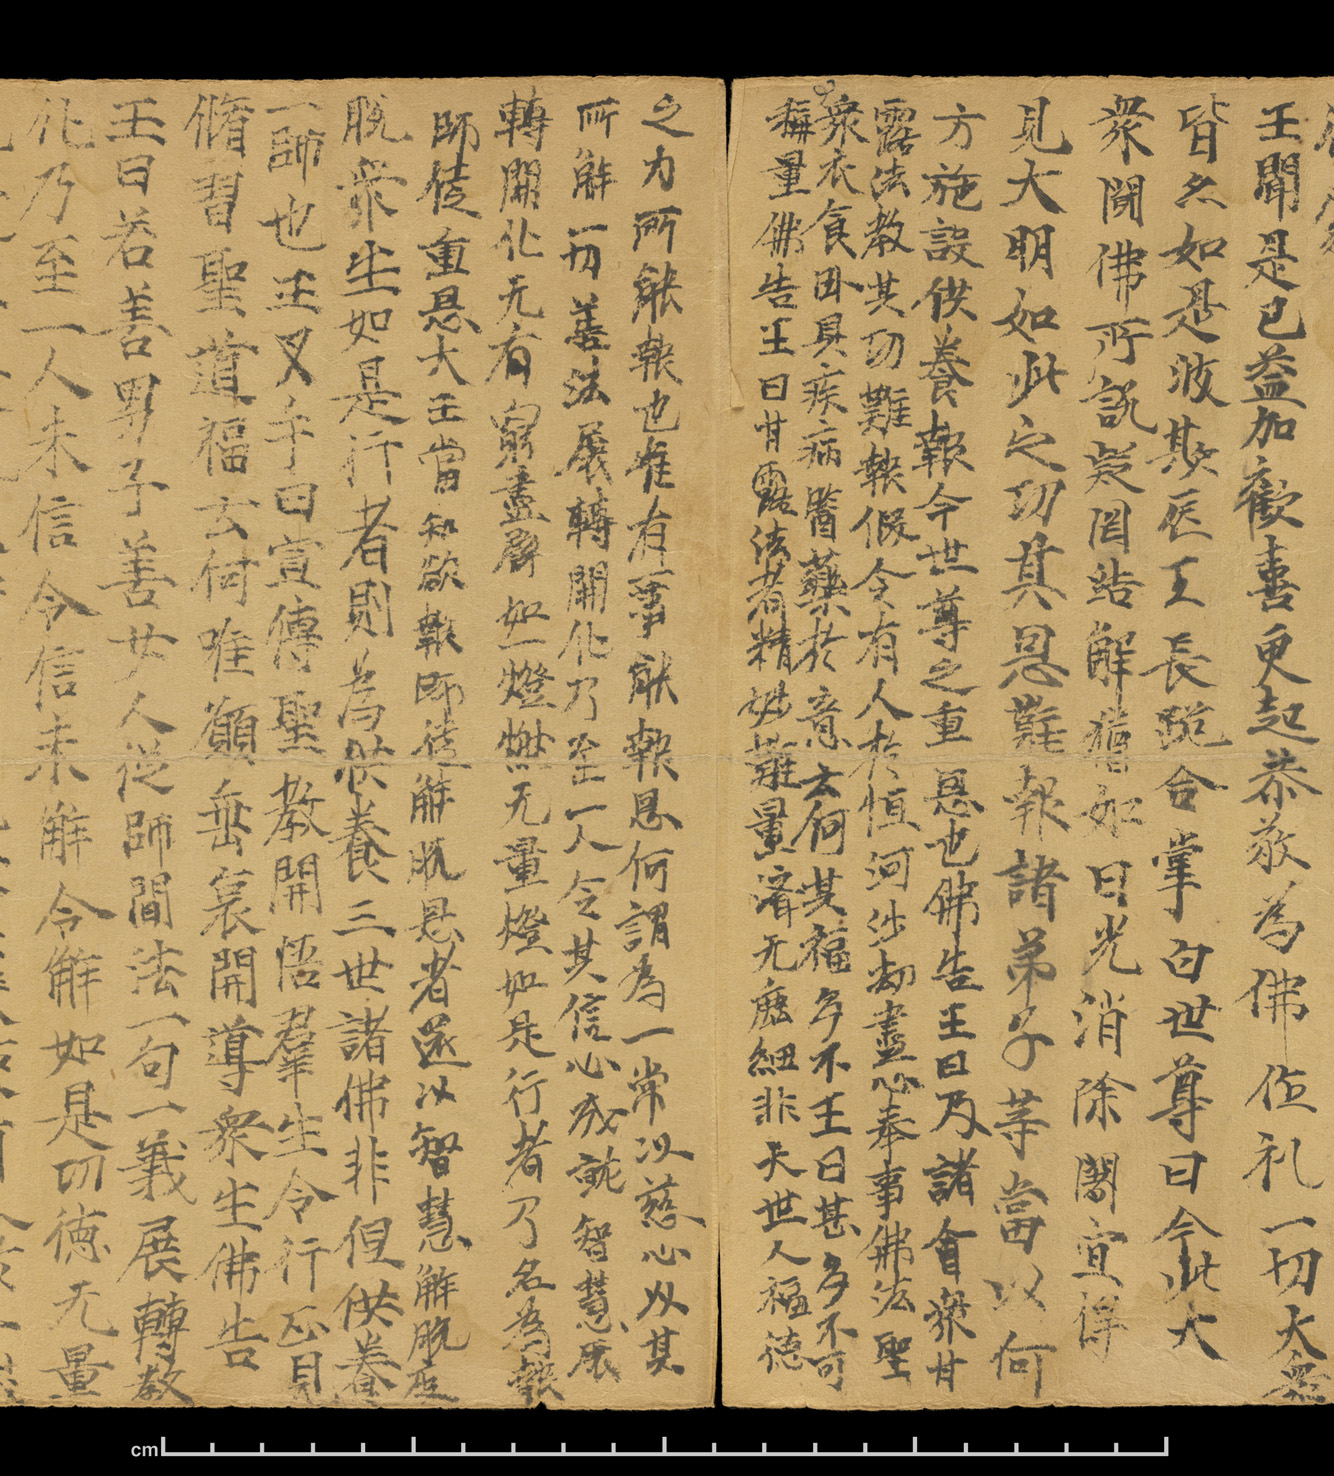 王聞是已益加歡喜更起恭敬為佛作礼一切大眾
皆亦如是波斯匿王長跪合掌白世尊曰今此大
衆聞佛所說疑罔結解猶如日光消除闇冥得
見大明如此之功其恩難報諸弟子等當以何
方施設供養報今世尊之重恩也佛告王曰乃諸會衆甘
露法教其功難報假令有人於恒河沙劫盡心奉事佛法聖
衆衣食卧具疾病醫藥於意云何其福多不王曰甚多不可
稱量佛告王曰甘露法者精妙難量濟无麁細非天世人福德
之力所能報也唯有一事能報恩何謂為一常以慈心以其
所解一切善法展轉開化乃至一人令其信心成就智慧展
轉開化无有窮盡譬如一燈燃无量燈如是行者乃名為報
師徒重恩大王當知欲報師徒解脱恩者還以智慧解脱
脱衆生如是行者則為供養三世諸佛非但供養
一師也王叉手曰宣傳聖教開悟羣生令行正見
脩習聖道福云何唯願垂哀開導衆生佛告
王曰若善男子善女人從師聞法一句一義展轉教
化乃至一人未信令信未解令解如是功德无量